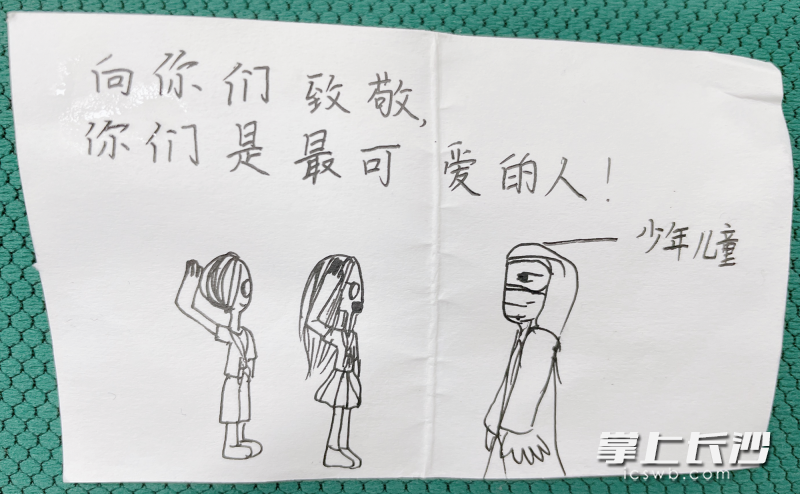 向你们致敬,
你们是最可爱的人!
少年儿童
掌上长沙
icswb.com